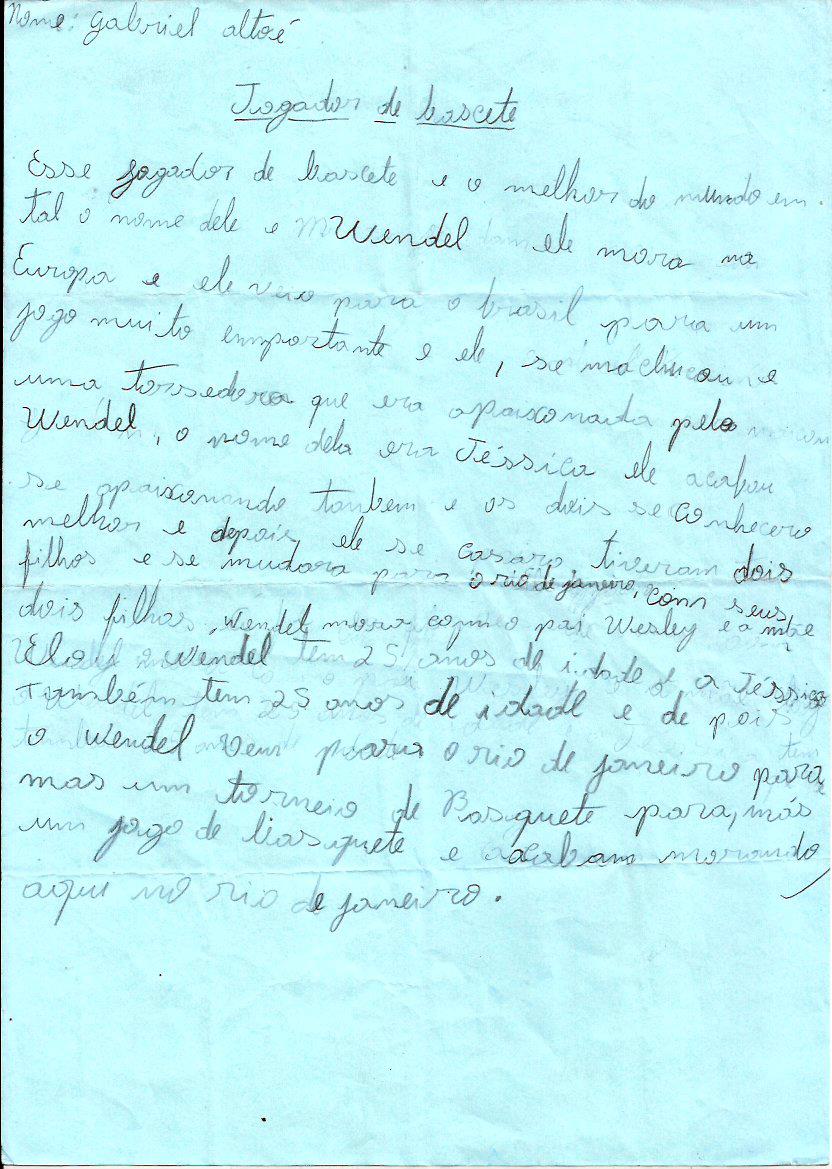 Nome: Gabriel altoé
Jogador de bascete
Esse jogador de bascete e o melhor do mundo em
tal o nome dele e Wendel ele mora na
Europa e ele veio para o brasil para um
jogo muito emportante e ele, se machucou e
uma torsedora que era apaixonada pelo
Wendel, o nome dela era Jéssica ele acabou
se apaixonando tanbem e os dois se conhecero
melhor e depois ele se casaro, tiveram dois
filhos e se mudara para o rio de janeiro, com seus
dois filhos, wendel mora com o pai Wesley e a mãe
wendel tem 25 anos de idade e a Jéssica
também tem 25 anos de idade e de pois
o wendel vem para o rio de janeiro para
mas um torneio de Basquete para, más
um jogo de basquete e acabam morando
aqui no rio de janeiro.